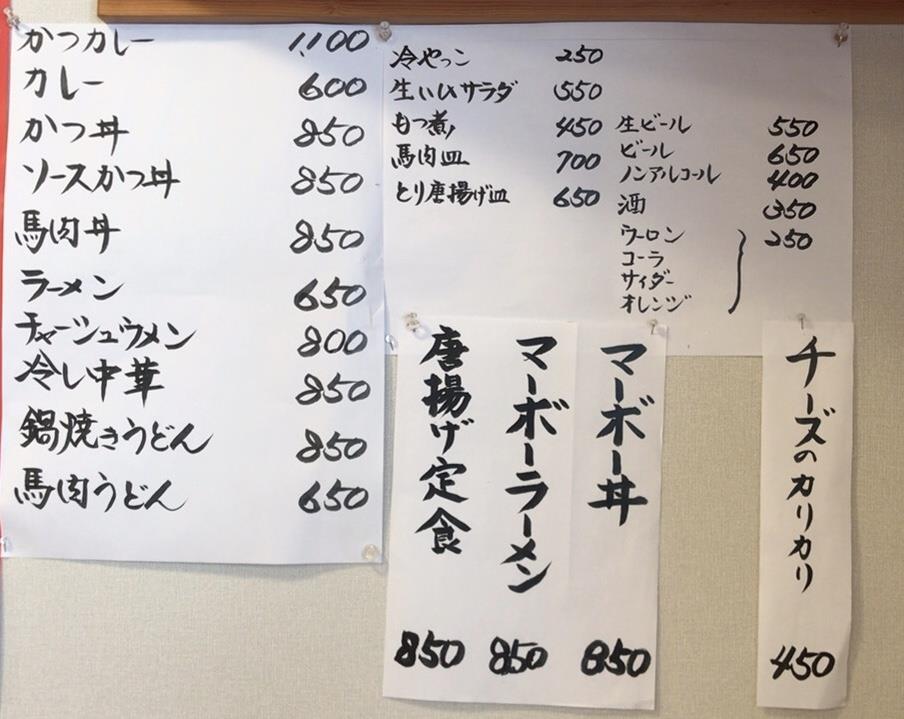 かつカレー 1,100
カレー 600
かつ丼 850
ソースかつ丼 850
馬肉丼 850
ラーメン 650
チャーシュウメン 800
冷し中華 850
鍋焼きうどん 850
馬肉うどん 650
冷やっこ 250
生いひサラダ 550
もつ煮 450
馬肉皿 700
とり唐揚げ皿 650
生ビール 550
ビール 650
ノンアルコール 400
酒 350
ウーロン 250
コーラ
サイダー
オレンジ
唐揚げ定食 850
マーボーラーメン 850
マーボー丼 850
チーズのカリカリ 450